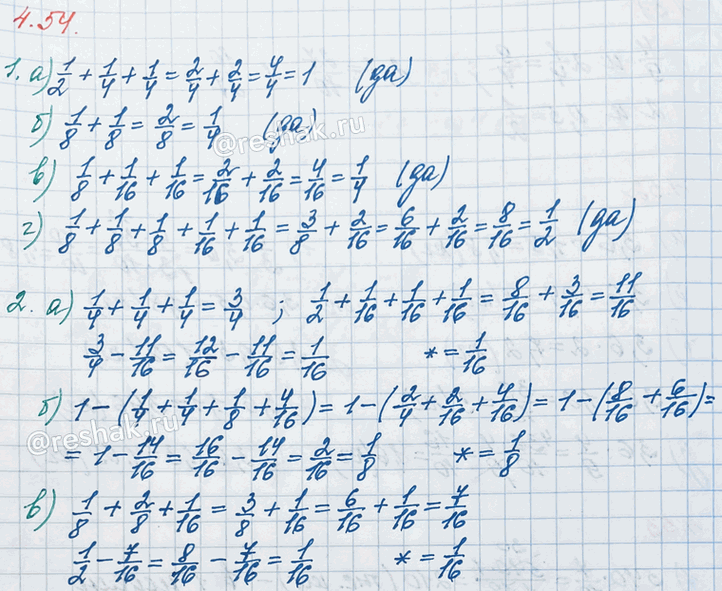 4.54.
1. а) 1/2 + 1/4 + 1/4 = 2/4 + 2/4 = 4/4 = 1 (да)
б) 1/8 + 1/8 = 2/8 = 1/4 (да)
@reshak.ru
в) 1/8 + 1/16 + 1/16 = 2/16 + 2/16 = 4/16 = 1/4 (да)
г) 1/8 + 1/8 + 1/8 + 1/16 + 1/16 = 3/8 + 2/16 = 6/16 + 2/16 = 8/16 = 1/2 (да)
2. а) 1/4 + 1/4 + 1/4 = 3/4 ; 1/2 + 1/16 + 1/16 + 1/16 = 8/16 + 3/16 = 11/16
3/4 - 11/16 = 12/16 - 11/16 = 1/16 * = 1/16
б) 1 - (1/4 + 1/4 + 1/8 + 4/16) = 1 - (2/4 + 2/16 + 4/16) = 1 - (8/16 + 6/16) =
@reshak.ru
= 1 - 14/16 = 16/16 - 14/16 = 2/16 = 1/8 * = 1/8
в) 1/8 + 2/8 + 1/16 = 3/8 + 1/16 = 6/16 + 1/16 = 7/16
1/2 - 7/16 = 8/16 - 7/16 = 1/16 * = 1/16